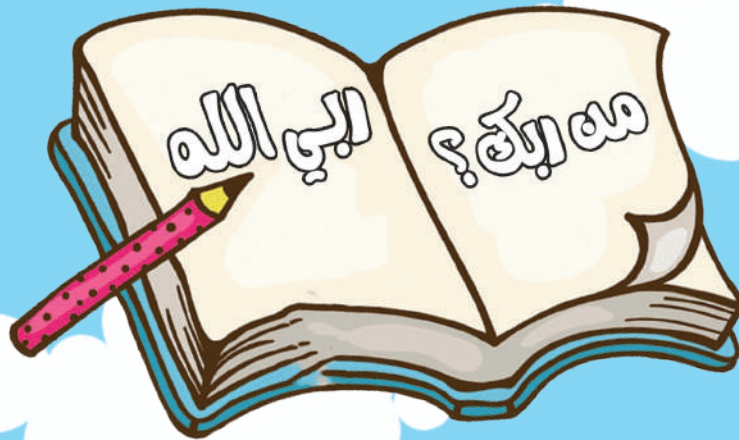 من ربك؟
ربي الله